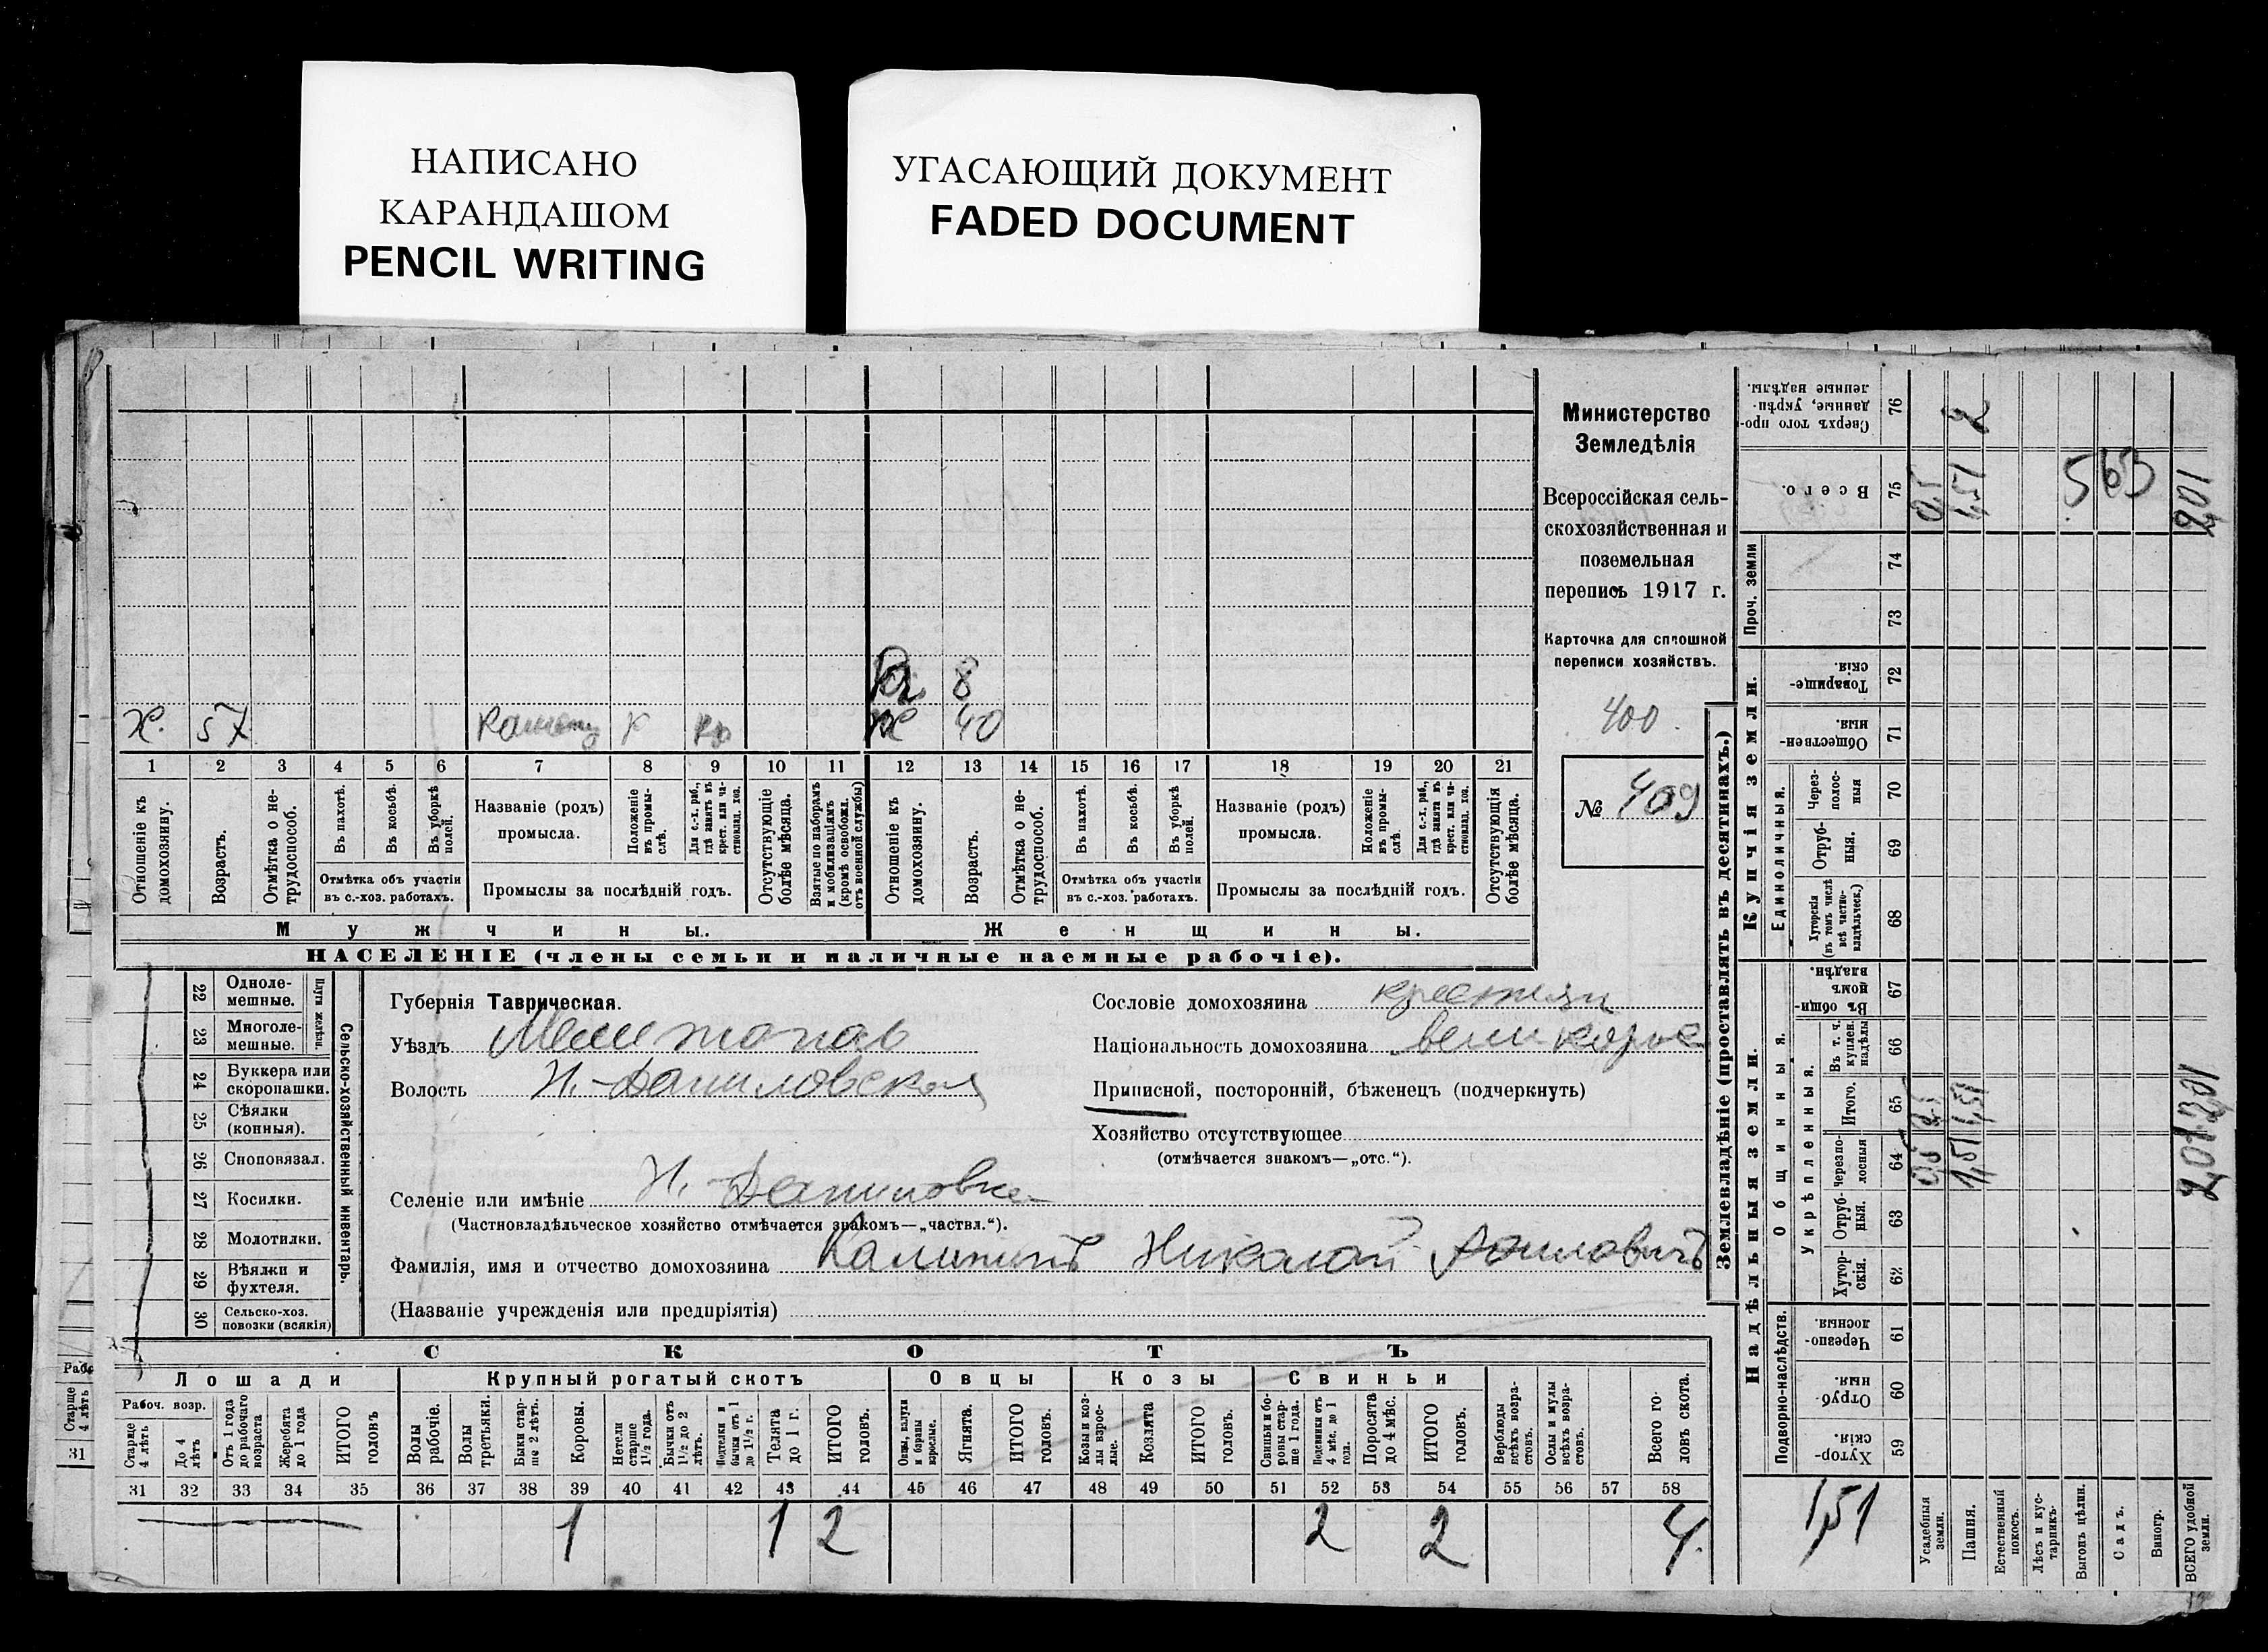 НАПИСАНО
КАРАНДАШОМ
PENCIL WRITING
УГАСАЮЩИЙ ДОКУМЕНТ
FADED DOCUMENT
Министерство
Земледѣлія
Всероссійская сель-
скохозяйственная и
поземельная
перепись 1917 г.
Карточка для сплошной
переписи хозяйствъ.
400
№ 409
Х. 57 К
8
Ж 40
1 2 3 4 5 6 7 8 9 10 11 12 13 14 15 16 17 18 19 20 21
Отношеніе къ домохозяину.
Возрасть.
Отмѣтка о не-трудоспособ.
Въ пахотѣ.
Въ косьбѣ.
Въ уборкѣ полей.
Отмѣтка объ участіи
въ с.-хоз. работахъ.
Названіе (родъ)
промысла.
Положеніе въ промы-слѣ.
Для с.-х. раб., гдѣ занятъ въ крест. или ча-стновлад. хоз.
Промыслы за послѣдній годъ.
Отсутствующіе болѣе мѣсяца.
Взятые по наборамъ и мобилизаціямъ (кромѣ освобожд. отъ военной службы)
Отношеніе къ домохозяину.
Возрастъ.
Отмѣтка о не-трудоспособ.
Въ пахотѣ.
Въ косьбѣ.
Въ уборкѣ полей.
Отмѣтка объ участіи
въ с.-хоз. работахъ.
Названіе (родъ)
промысла.
Положеніе въ промы-слѣ.
Для с.-х. раб., гдѣ занята въ крест. или ча-стновлад. хоз.
Промыслы за послѣдній годъ.
Отсутствующія болѣе мѣсяца.
Мужчины.
Женщины.
НАСЕЛЕНІЕ (члены семьи и наличные наемные рабочіе).
22 Одноле-мешные.
23 Многоле-мешные.
Плуги желѣзн.
24 Буккера или скоропашки.
25 Сѣялки (конныя).
26 Сноповязал.
27 Косилки.
28 Молотилки.
29 Вѣялки и фухтеля.
30 Сельско-хоз. повозки (всякія)
Сельско-хозяйственный инвентарь.
Губернія Таврическая.
Уѣздъ Мелитополь
Волость Н.-Даниловская
Селеніе или имѣніе Н. Даниловка
(Частновладѣльческое хозяйство отмѣчается знакомъ—„частвл.“).
Фамилія, имя и отчество домохозяина Калининъ Николай
(Названіе учрежденія или предпріятія)
Сословіе домохозяина крестьян
Національность домохозяина великорос
Приписной, посторонній, бѣженецъ (подчеркнуть)
Хозяйство отсутствующее
(отмѣчается знакомъ—„отс.“).
СКОТЪ
Лошади
Крупный рогатый скотъ
Овцы
Козы
Свиньи
Рабоч. возр.
Старше 4 лѣтъ
До 4 лѣтъ
Отъ 1 года до рабочаго возраста
Жеребята до 1 года
ИТОГО головъ
Волы рабочіе.
Волы третьяки.
Быки стар-ше 2 лѣтъ.
Коровы.
Нетели старше 1½ года.
Бычки отъ 1½ до 2 лѣтъ.
Подтелки и бычки отъ 1 до 1½ г.
Телята до 1 г.
ИТОГО головъ.
Овцы, валухи и бараны взрослые.
Ягнята.
ИТОГО головъ.
Козы и коз-лы взрос-лые.
Козлята
ИТОГО головъ.
Свиньи и бо-ровы стар-ше 1 года.
Подсвинки отъ 4 мѣс. до 1 года.
Поросята до 4 мѣс.
ИТОГО головъ.
Верблюды всѣхъ возра-стовъ.
Ослы и мулы всѣхъ возра-стовъ.
Всего го-ловъ скота.
31 32 33 34 35 36 37 38 39 40 41 42 43 44 45 46 47 48 49 50 51 52 53 54 55 56 57 58
1 1 2 2 2 4
Старше 4 лѣтъ
31
Землевладѣніе (проставлять въ десятинахъ.)
Надѣльныя земли.
Купчія земли.
Проч. земли
Подворно-наслѣдств.
Общинныя.
Укрѣпленныя.
Единоличныя.
Сверхъ того про-данные, укрѣп-ленные надѣлы.
76
Всего.
75
74
73
Товарище-скія.
72
Обществен-ныя.
71
Через-полос-ныя
70
Отруб-ныя.
69
Хуторскія (въ томъ числѣ всѣ частно-владѣльческ.)
68
Въ общин-номъ владѣн.
67
Въ т. ч. куплен. надѣлы
66
Итого.
65
Черезпо-лосныя
64
Отруб-ныя.
63
Хутор-скія.
62
Черезпо-лосныя.
61
Отруб-ныя.
60
Хутор-скія.
59
Усадебныя земли.
Пашня.
Естественный покосъ.
Лѣсъ и кус-тарникъ.
Выгонъ цѣлин.
Садъ.
Виногр.
ВСЕГО удобной земли.
0,5
1,51
2
563
2,01
0,5 0,5
1,51 1,51
2,01 2,01
1,51